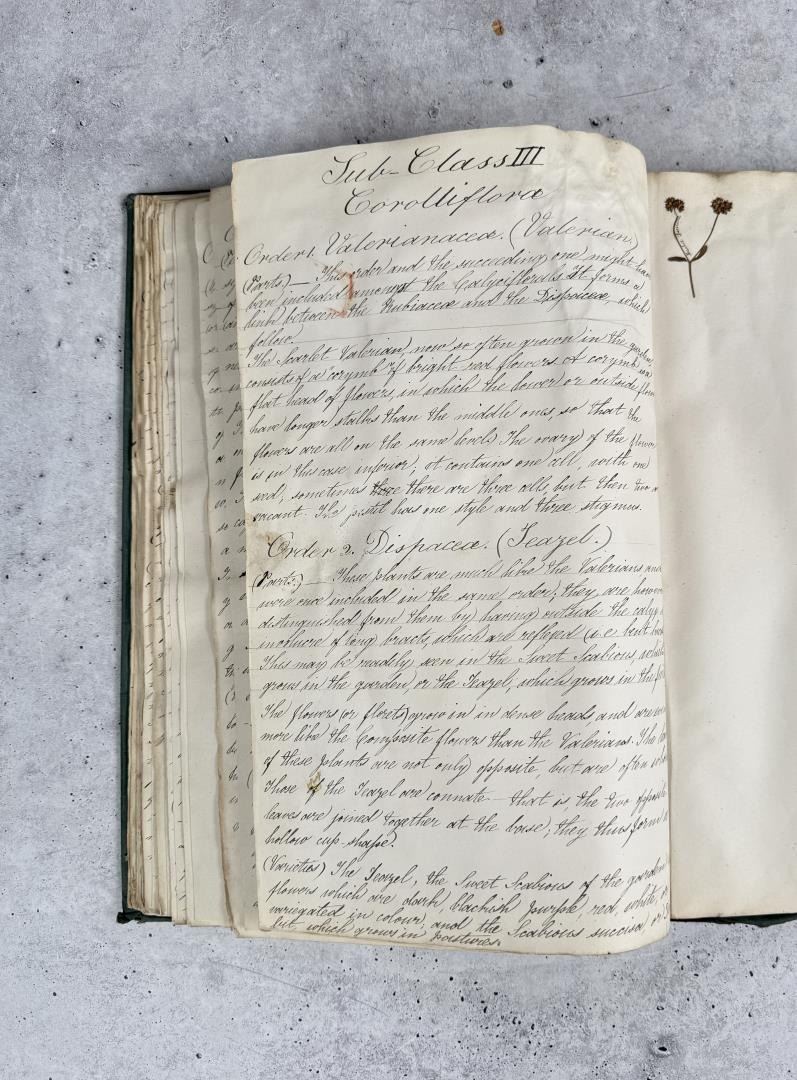 Sub-Class III
Corolliflora
Order 1. Valerianaceæ. (Valerian)
(Parts) — This order and the succeeding one might have
been included amongst the Calyciflorals. It forms a
link between the Rubiaceæ and the Dispaceæ, which
follow.
The Scarlet Valerian, now so often grown in the garden
consists of a "corymb" of bright red flowers. A corymb is a
flat head of flowers, in which the lower or outside flow
have longer stalks than the middle ones, so that the
flowers are all on the same level. The ovary of the flower
is in this case inferior, it contains one cell, with one
seed; sometimes there are three cells, but then two a
vacant. The pistil has one style and three stigmas.
Order 2. Dispaceæ. (Teazel.)
(Parts.) — These plants are much like the Valerians and
were once included in the same order; they are however
distinguished from them by having outside the calyx
involucre of long bracts, which are reflexed (i.e. bent back
This may be readily seen in the Sweet Scabious, which
grows in the garden, or the Teazel, which grows in the
The flowers (or florets) grow in in dense heads, and are
more like the Composite flowers than the Valerians. The
of these plants are not only opposite, but are often
Those of the Teazel are connate — that is, the two opposite
leaves are joined together at the base; they thus form a
hollow cup-shape.
(Varieties) The Teazel, the Sweet Scabious of the garden
flowers which are dark, blackish purple, red, white, or
variegated in colour; and the Scabious succisa, or
bit, which grows in pastures.